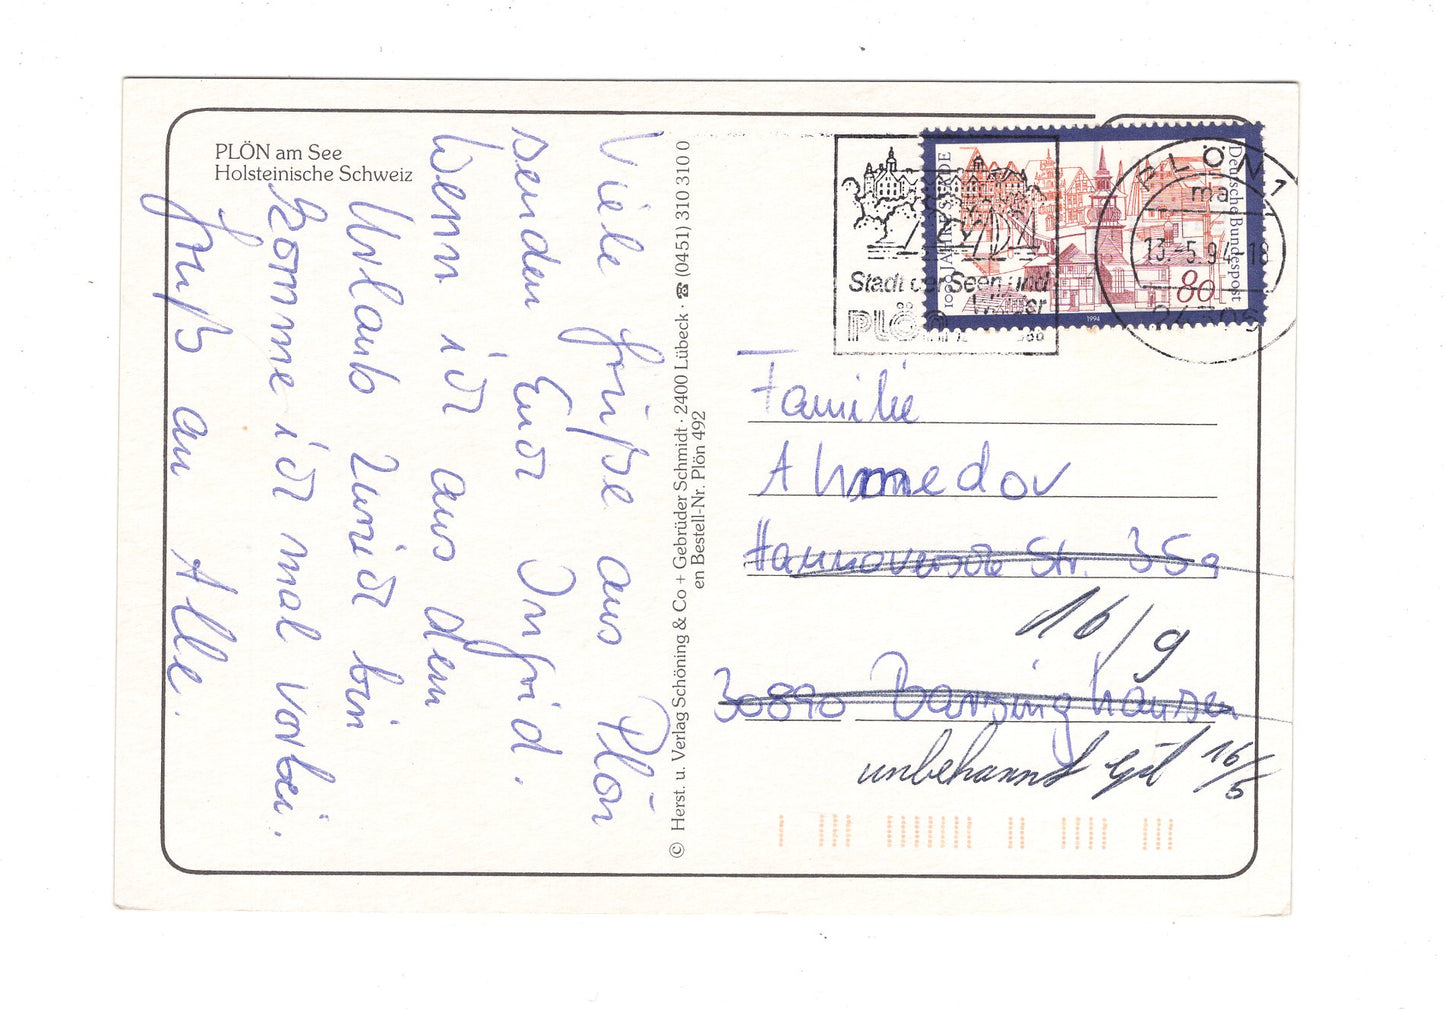 PLÖN am See
Holsteinische Schweiz
Viele Grüße aus Plön
senden Euch Ingrid.
Wenn ich aus dem
Urlaub zurück bin
komme ich mal vorbei.
Gruß an Alle.
© Herst. u. Verlag Schöning & Co + Gebrüder Schmidt · 2400 Lübeck · ☎ (0451) 310 310 0
en Bestell-Nr. Plön 492
Stadt der Seen und
Wälder
PLÖN
1000 JAHRE STADE
Deutsche Bundespost
80
1994
PLÖN 1
ma
13.-5.94-18
24306
Familie
Ahmedov
Hannoversche Str. 35a
16/9
30890 Barsinghausen
unbekannt
16/5